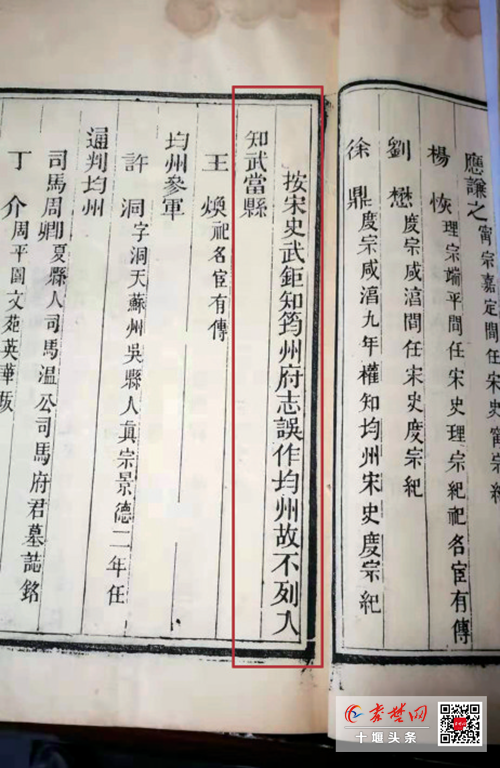 應謙之寧宗嘉定間任宋史寧宗紀
楊恢理宗端平間任宋史理宗紀祀名宦有傳
劉懋度宗咸淳間任宋史度宗紀
徐鼎度宗咸淳九年權知均州宋史度宗紀
按宋史武鉅知筠州府志誤作均州故不列入
知武當縣
王煥祀名宦有傳
均州參軍
許洞字洞天蘇州吳縣人真宗景德二年任
通判均州
司馬周卿夏縣人司馬温公司馬府君墓誌銘
丁介周平園文苑英華跋
秦楚网
十堰头条